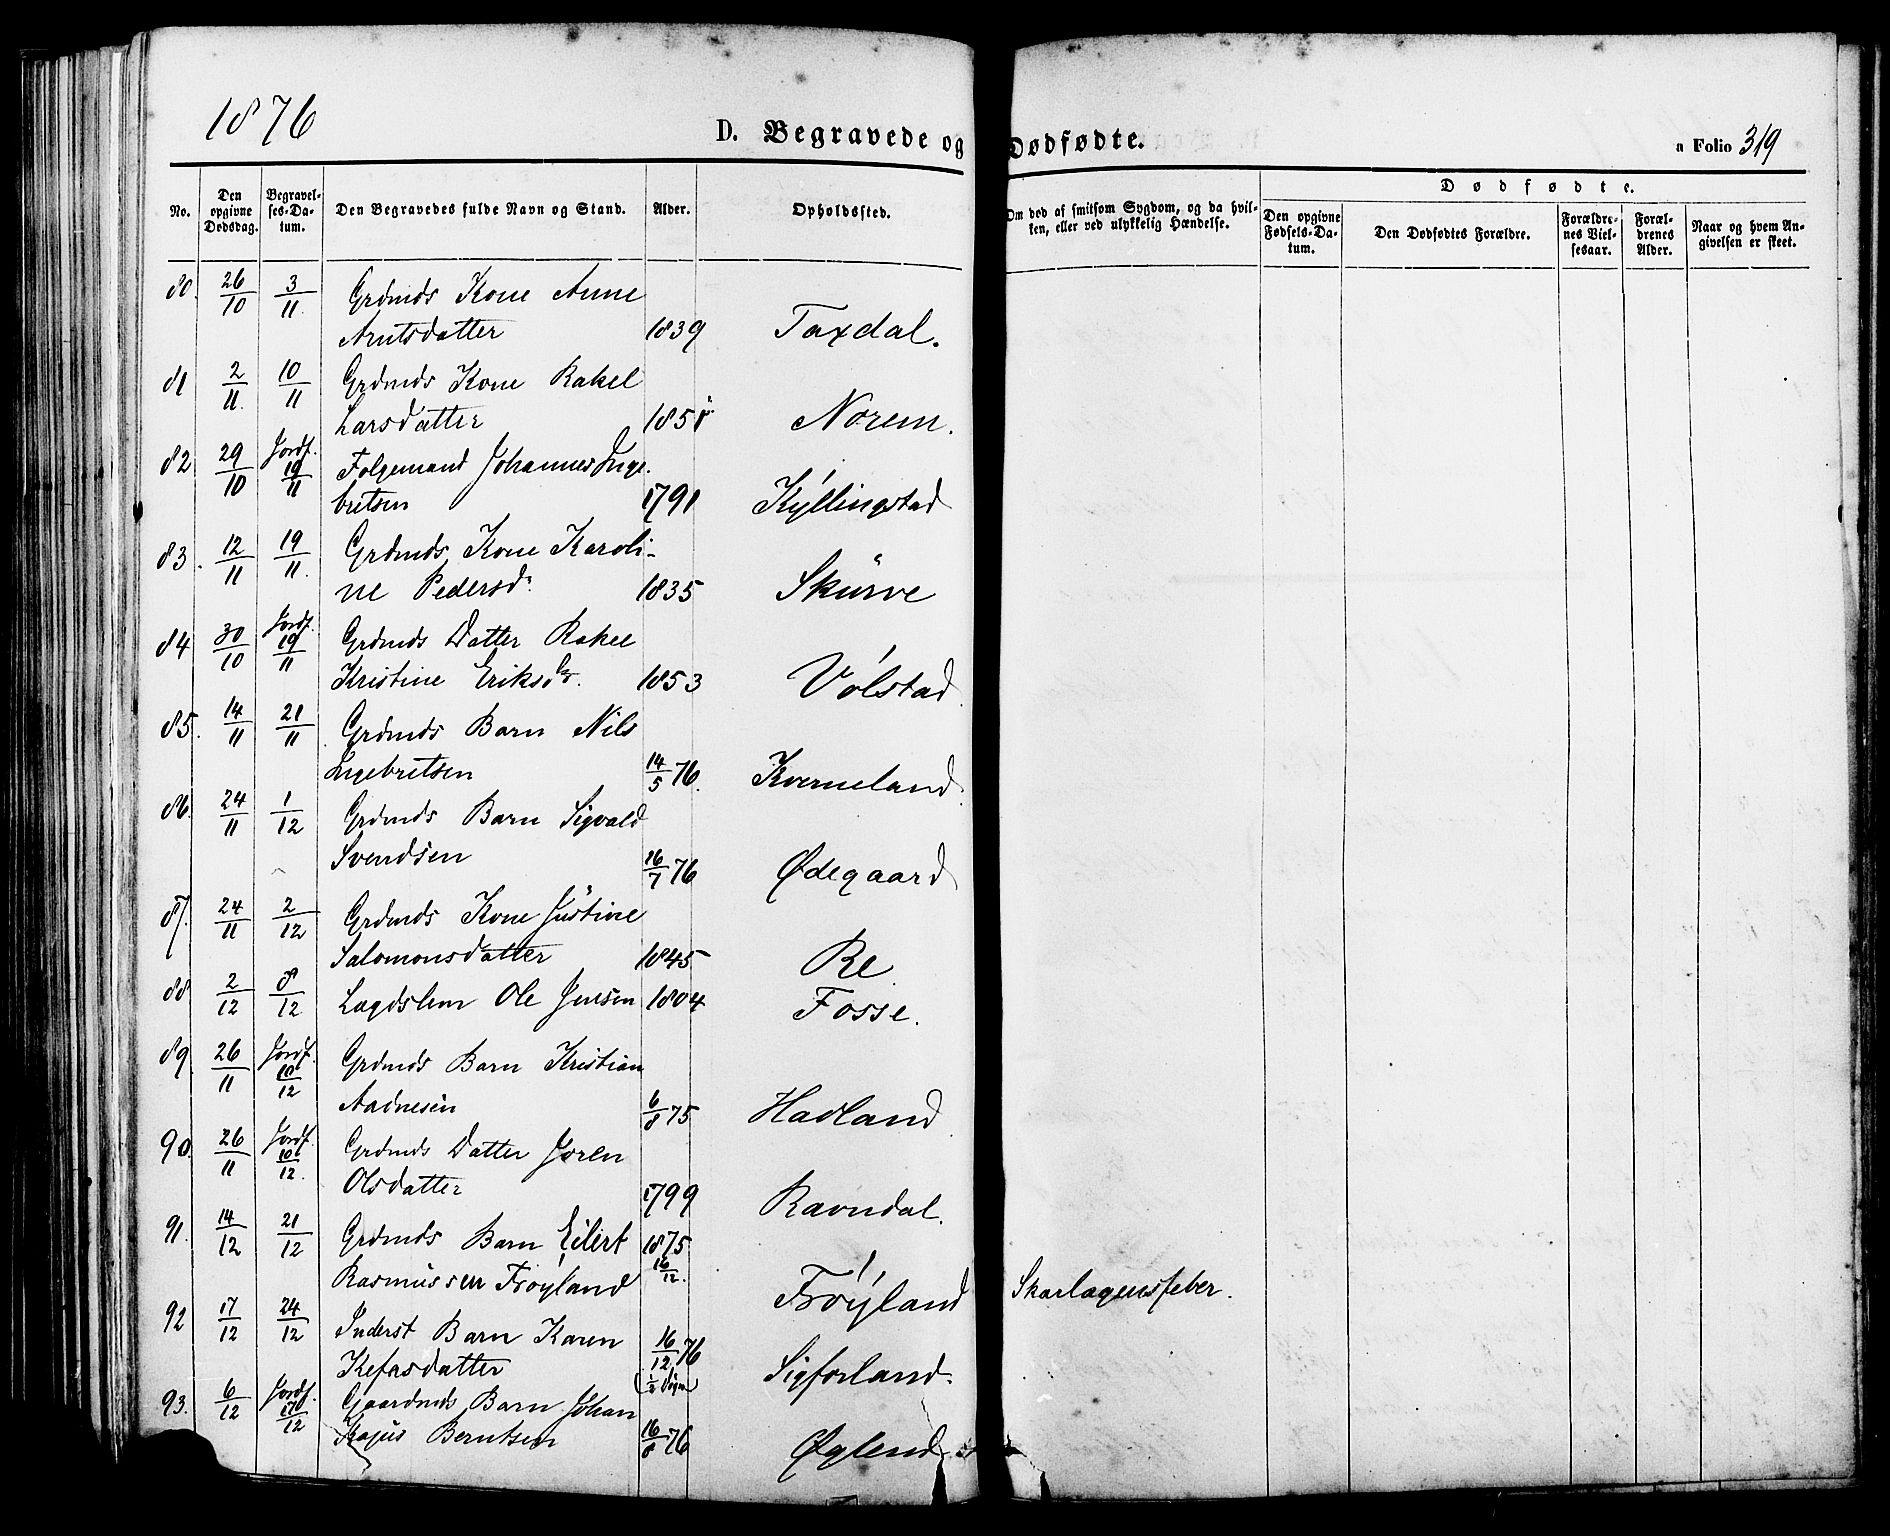 1876
D. Begravede og Dødfødte.
a Folio 319
No.
Den opgivne Dødsdag.
Begravelses-Datum.
Den Begravedes fulde Navn og Stand.
Alder.
Opholdssted.
Om død af smitsom Sygdom, og da hvilken, eller ved ulykkelig Hændelse.
Dødfødte.
Den opgivne Fødsels-Datum.
Den Dødfødtes Forældre.
Forældrenes Vielsesaar.
Forældrenes Alder.
Naar og hvem Angivelsen er skeet.
80. 26/10 3/11. Grdmds Kone Anne
Arntsdatter 1839 Taxdal.
81 2/11. 10/11 Grdmds Kone Rakel
Larsdatter Norem.
82 29/10 Jordf. 19/11 Folgemand Johannes Inge-
britsen 1791 Kyllingstad
83. 12/11 19/11. Grdmds Kone Karoli-
ne Pedersd. 1835 Skurve
84 30/10 Jordf. 19/11 Grdmds Datter Rakel
Kristine Eriksd. 1853 Vølstad
85. 14/11 21/11 Grdmds Barn Nils
Ingebretsen 14/5 76. Kverneland.
86. 24/11 1/12 Grdmds Barn Sigvald
Svendsen 16/7 76 Ødegaard
87. 24/11 2/12 Grdmds Kone Justine
Salomonsdatter 1845 Re
88 2/12 8/12 Lægdslem Ole Jensen 1804 Fosse.
89. 26/11 Jordf. 10/12 Grdmds Barn Kristian
Aadnesen 6/8 75 Hadland
90. 26/11 Jordf. 10/12. Grdmds Datter Joren
Olsdatter 1799 Ravndal.
91. 14/12 21/12 Grdmds Barn Eilert 1875
Rasmussen Frøyland 16/12. Frøyland Skarlagensfeber.
92 17/12 24/12 Inderst Barn Karen
Kefasdatter 16/12 76 (1/2 Døgn) Sigforland.
93. 6/12 Jordf. 17/12 Gaardmds Barn Johan
Kajus Berntsen 16/8 76 Øglend